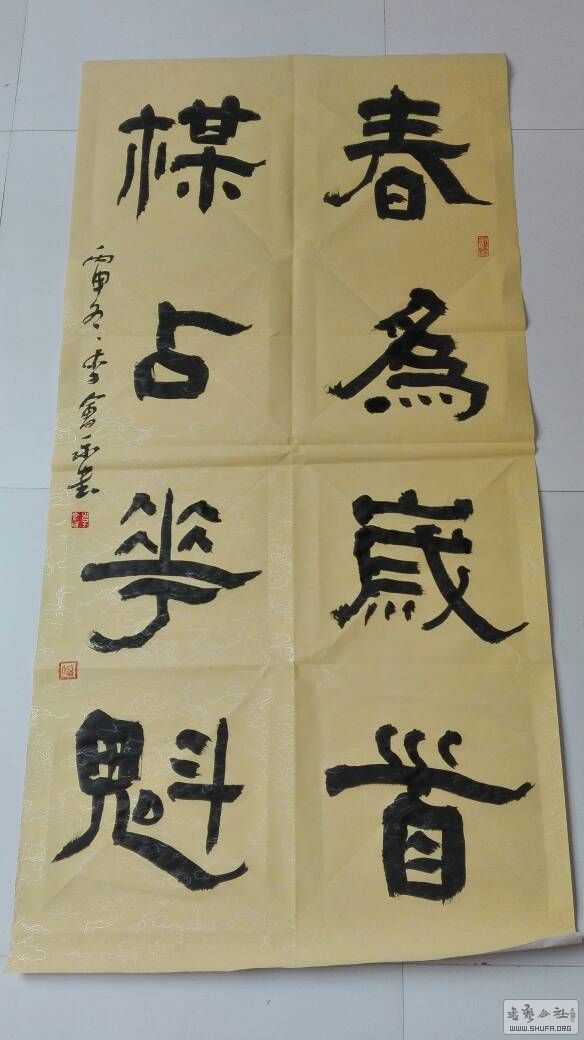 春為歲首
楳占華魁
丙申冬李會書
書藝公社
WWW.SHUFA.ORG